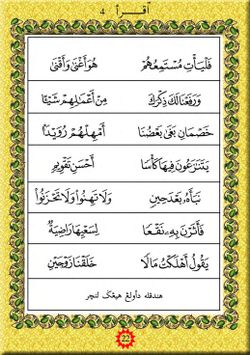 اقرأ ٤
فَلْيَأْتِ مُسْتَمِعُهُم هُوَ أَغْنَىٰ وَأَقْنَىٰ
وَرَفَعْنَا لَكَ ذِكْرَكَ مِنْ أَعْمَٰلِهِمْ شَيْـًٔا
خَصْمَانِ بَغَىٰ بَعْضُنَا أَمْهِلْهُمْ رُوَيْدًۢا
يَتَنَٰزَعُونَ فِيهَا كَأْسًا أَحْسَنِ تَقْوِيمٍ
نَبَأَهُۥ بَعْدَ حِينٍ وَلَا تَهِنُوا۟ وَلَا تَحْزَنُوا۟
فَأَثَرْنَ بِهِۦ نَقْعًا لِسَعْيِهَا رَاضِيَةٌ
يَقُولُ أَهْلَكْتُ مَالًا خَلَقْنَا زَوْجَيْنِ
هندقله داولڠ هيڠݢ لنچر
22